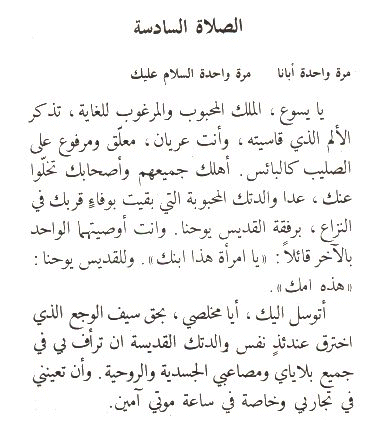 الصلاة السادسة
مرة واحدة أبانا مرة واحدة السلام عليك
يا يسوع ، الملك المحبوب والمرغوب للغاية ، تذكر
الألم الذي قاسيته ، وأنت عريان، معلّق ومرفوع على
الصليب كالبائس. أهلك جميعهم وأصحابك تخلّوا
عنك، عدا والدتك المحبوبة التي بقيت بوفاءٍ قربك في
النزاع، برفقة القديس يوحنا. وانت أوصيتهما الواحد
بالآخر قائلاً: «يا امرأة هذا ابنك». وللقديس يوحنا:
«هذه امك».
أتوسل اليك، أيا مخلصي، بحق سيف الوجع الذي
اخترق عندئذٍ نفس والدتك القديسة ان ترأف بي في
جميع بلاياي ومصاعبي الجسدية والروحية. وأن تعينني
في تجاربي وخاصة في ساعة موتي آمين.